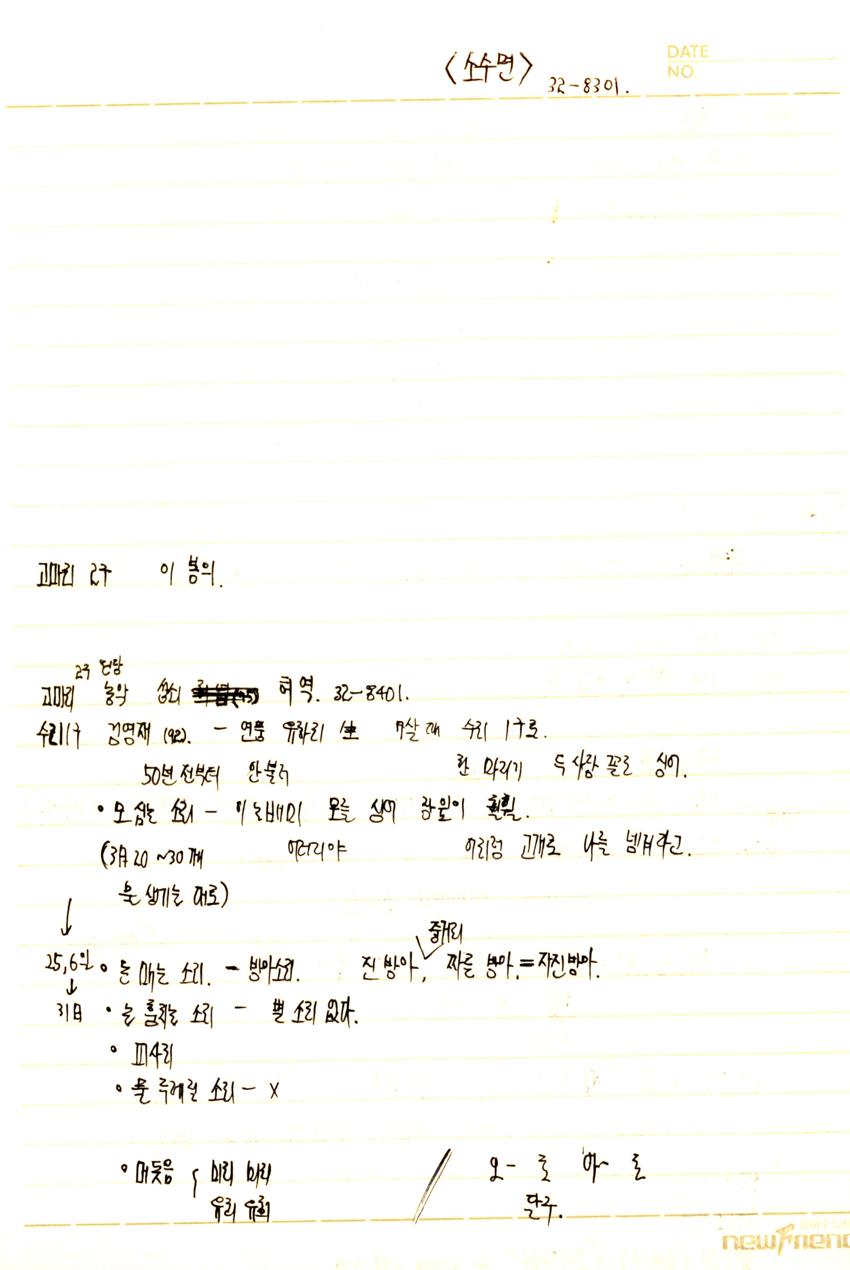 <소수면> 32-8301.
DATE
NO
고마리 2구 이봉의.
2구 전당
고마리 농악 상쇠 허역. 32-8401.
수리1구 김영재 (92). - 연풍 유하리 生 7살 때 수리 1구로.
50년 전부터 안불러
한 마리기 두 사람 꼴로 심어.
• 모 심는 소리 - 이 논배미 모를 심어 잎이 훨훨.
(3日 20~30개 여러리야 아리랑 고개로 나를 넘겨라고.
물 생기는 대로)
↓
줄거리
25,6일 • 논 매는 소리. - 방아소리. 진 방아, 짜른 방아.=자진방아.
↓
31日 • 논 훔치는 소리 - 뺄 소리 없다.
• 피사리
• 물 두레질 소리 - X
• 머듯음 미리 미리 // 오- 호 아~ 호
유리 유리 달구.
newFriend